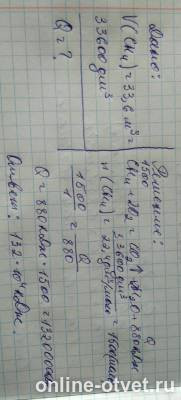 Дано:
V(CH₄) = 33,6 м³ =
33600 дм³
Q = ?
Решение:
1500 Q
CH₄ + 2O₂ = CO₂↑ + H₂O + 880 кДж
n(CH₄) = 33600 дм³ / = 1500
1500 / 1 = Q / 880
Q = 880 кДж · 1500 = 1320000
Ответ: 132 · 10⁴ кДж.
online-otvet.ru